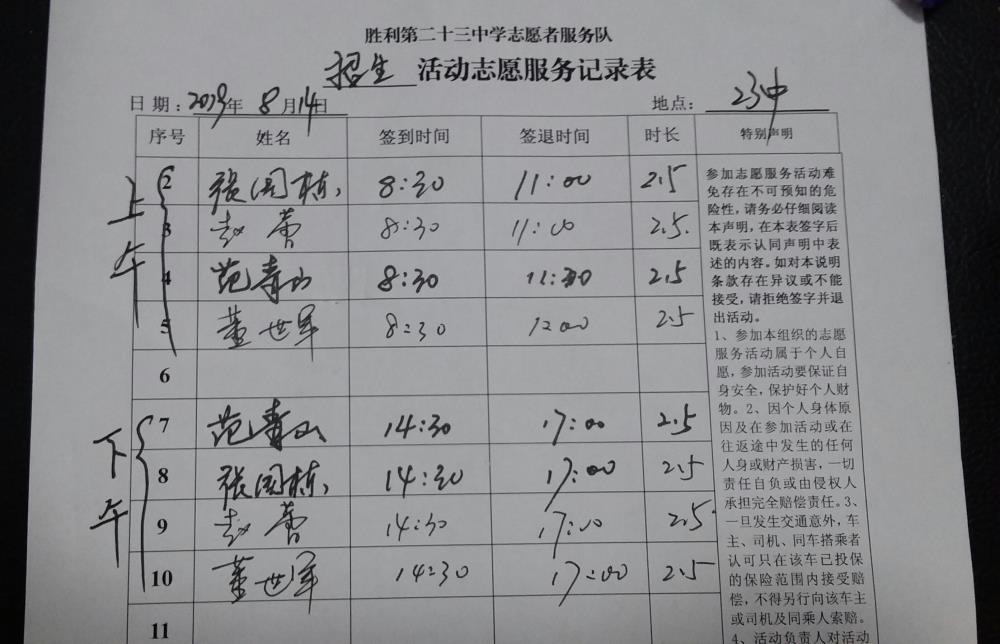 胜利第二十三中学志愿者服务队
招生 活动志愿服务记录表
日期：2023年 8月14日 地点：23中
序号 姓名 签到时间 签退时间 时长 特别声明
上午
2 张国栋 8:30 11:00 2.5
3 赵蕾 8:30 11:00 2.5
4 范青山 8:30 2.5
5 董世军 8:30 1200 2.5
6
下午
7 范青山 14:30 17:00 2.5
8 张国栋 14:30 17:00 2.5
9 赵蕾 14:30 17:00 2.5
10 董世军 14:30 17:00 2.5
11
参加志愿服务活动难
免存在不可预知的危
险性，请务必仔细阅读
本声明，在本表签字后
既表示认同声明中表
述的内容。如对本说明
条款存在异议或不能
接受，请拒绝签字并退
出活动。
1、参加本组织的志愿
服务活动属于个人自
愿，参加活动要保证自
身安全，保护好个人财
物。2、因个人身体原
因及在参加活动或在
往返途中发生的任何
人身或财产损害，一切
责任自负或由侵权人
承担完全赔偿责任。3、
一旦发生交通意外，车
主、司机、同车搭乘者
认可只在该车已投保
的保险范围内接受赔
偿，不得另行向该车主
或司机及同乘人索赔。
4、活动负责人对活动